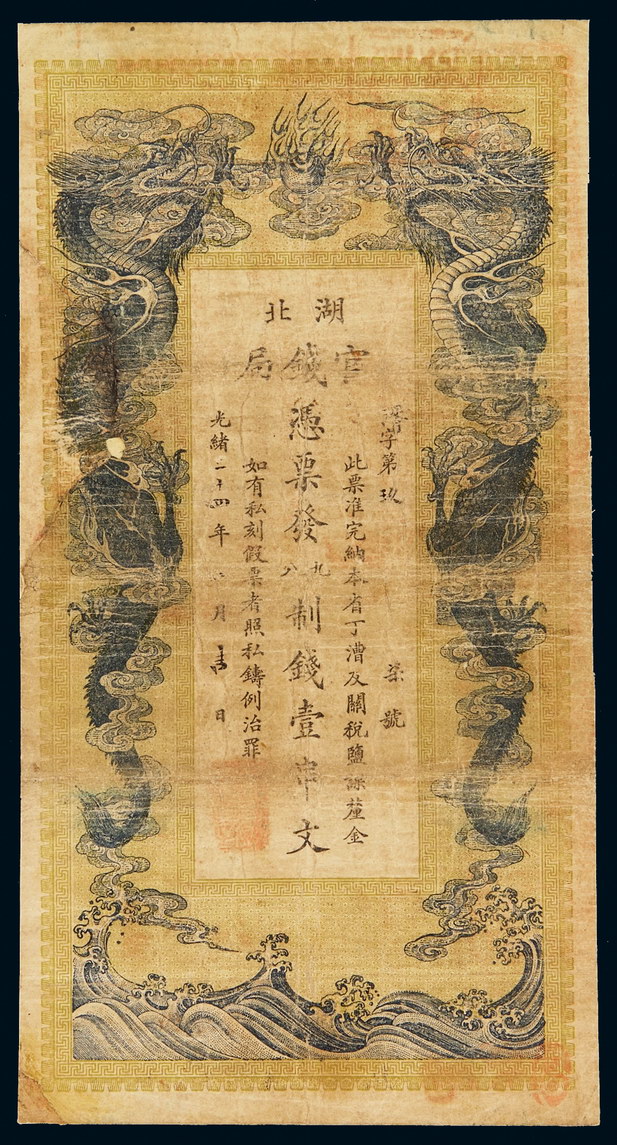 湖北
官錢局
字第玖 柒號
此票准完納本省丁漕及關稅鹽課釐金
憑票發九八制錢壹串文
如有私刻假票者照私鑄例治罪
光緒二十四年 月 日